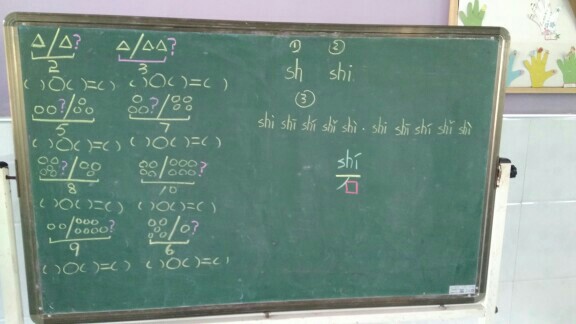 △/△? △/△△?
2 3
( )○( )=( ) ( )○( )=( )
○○?/○○○ ○○○?/○○○○
5 7
( )○( )=( ) ( )○( )=( )
8 10
( )○( )=( ) ( )○( )=( )
9 6
( )○( )=( ) ( )○( )=( )
① ②
sh shi
③
shi shī shí shǐ shì . shi shī shí shǐ shì
shí